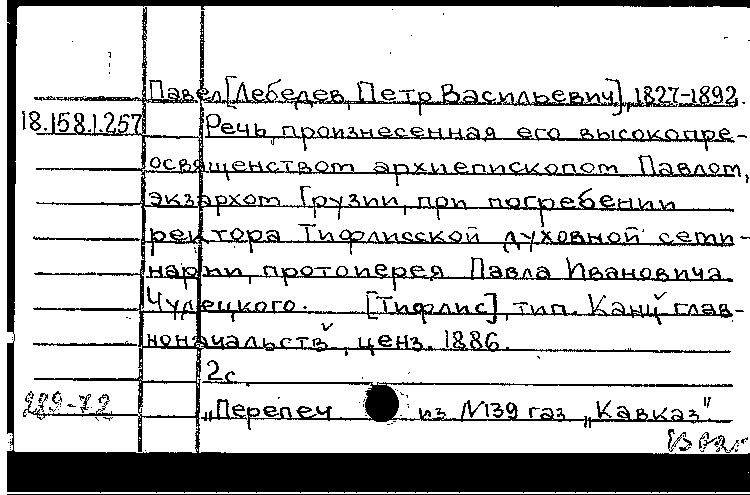 Павел [Лебедев, Петр Васильевич], 1827-1892.
18.158.1.257 Речь, произнесенная его высокопре-
освященством архиепископом Павлом,
экзархом Грузии, при погребении
ректора Тифлисской духовной семи-
нарии, протоиерея Павла Ивановича
Чудецкого. [Тифлис], тип. Канц. глав-
ноначальств., ценз. 1886.
2с.
289-72 „Перепеч из №139 газ „Кавказ"